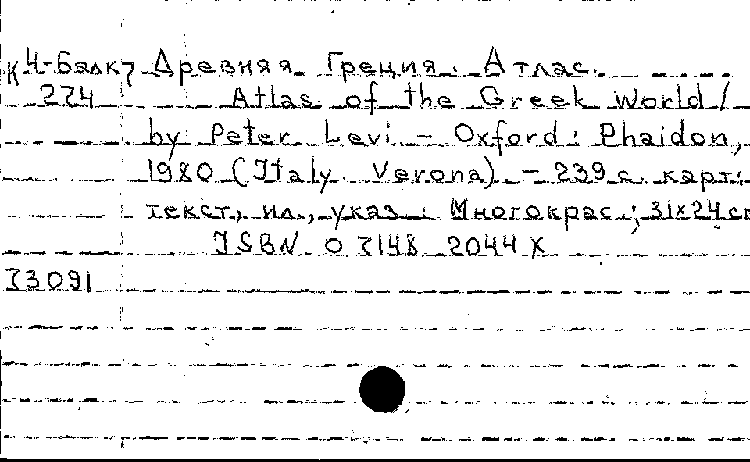 К Ч-Балк7 Древняя Греция. Атлас.
224 Atlas of the Greek World /
by Peter Levi. - Oxford: Phaidon,
1980 (Italy. Verona). - 239 с. карт.:
текст., ил., указ.: Многокрас.; 31x24 см
ISBN 0 7148 2044 X
73091